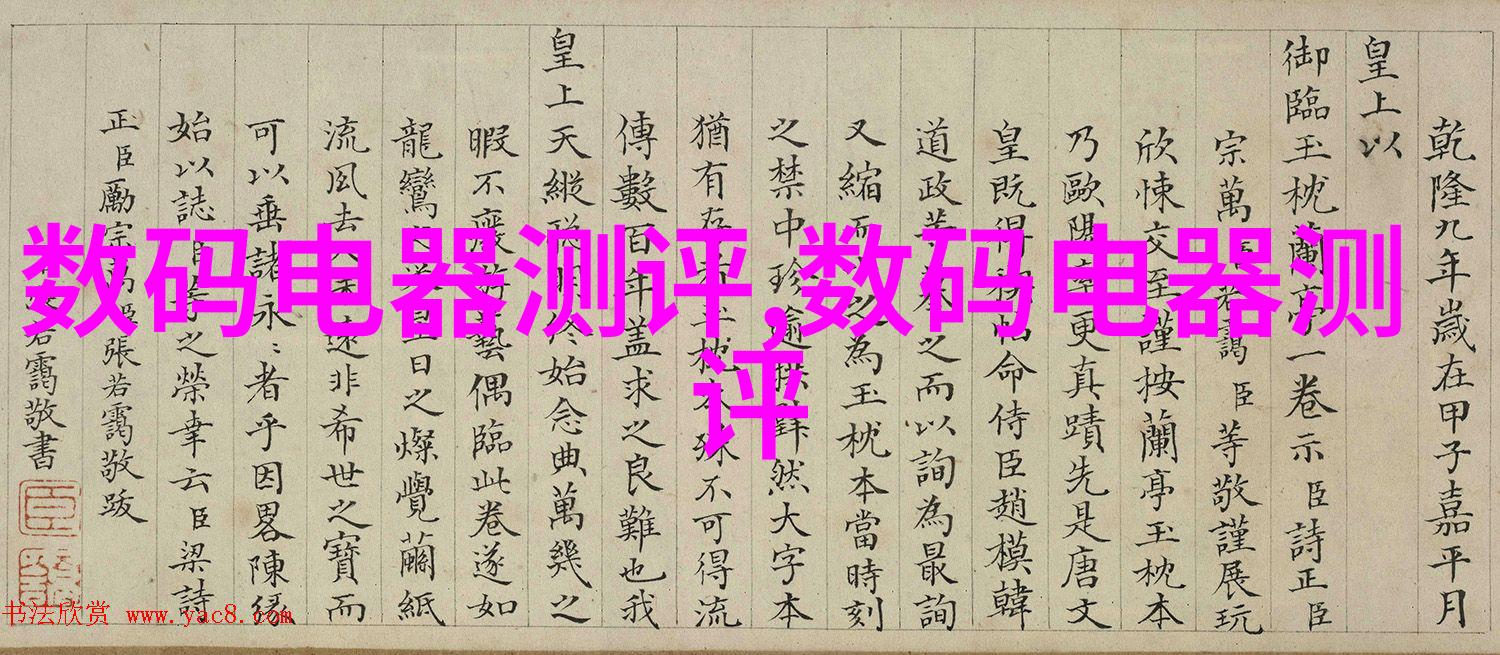 数码电器测评,数码电器测
评
乾隆九年歲在甲子嘉平月
皇上以
御臨玉枕蘭亭一卷示臣詩正臣
宗萬臣若靄臣等敬謹展玩
欣悚交至謹按蘭亭玉枕本
乃歐陽率更真蹟先是唐文
皇既得稧帖命侍臣趙模韓
道政等之而以詢為最詢
又縮而之為玉枕本當時刻
之禁中珍逾拱然大字本
猶有存者玉枕本殊不可得流
傳數百年盖求之良難也我
皇上天縱聪明終始念典萬幾之
暇不廢游藝偶臨此卷遂如
龍鸞日之燦覺繭紙
流風去不遠非希世之寶而
可以垂諸永:者乎因畧陳緣
始以誌臣等之榮幸云臣梁詩
正臣勵宗萬臣張若靄敬跋
若靄敬書
书法欣赏 www.yac8.com